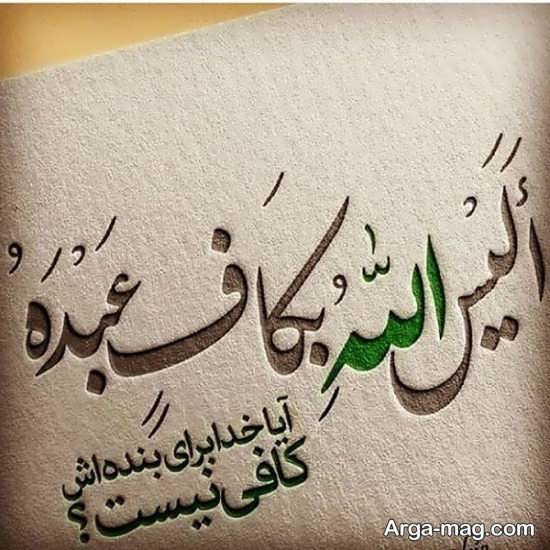 أَلَيْسَ اللّٰهُ بِكَافٍ عَبْدَهُ
آیا خدا برای بنده‌اش
کافی نیست؟
Arga-mag.com